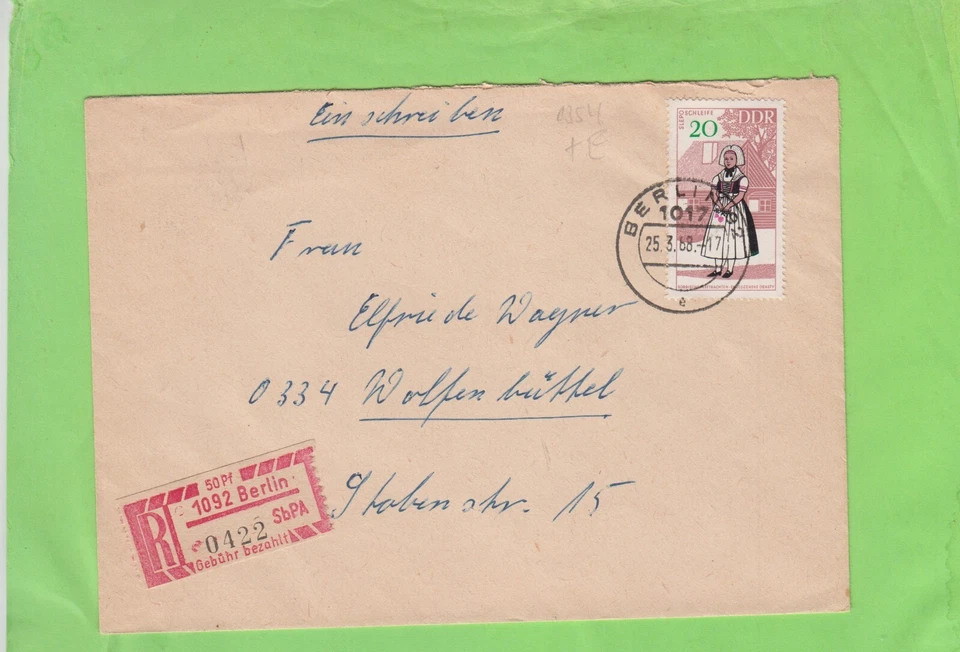 Einschreiben
0354
+E
SLEPO SCHLEIFE
20 DDR
BERLIN
1017
25.3.68.-17
e
Frau
Elfriede Wagner
0334 Wolfenbüttel
Stobenstr. 15
50Pf
1092 Berlin
R SbPA
0422
Gebühr bezahlt